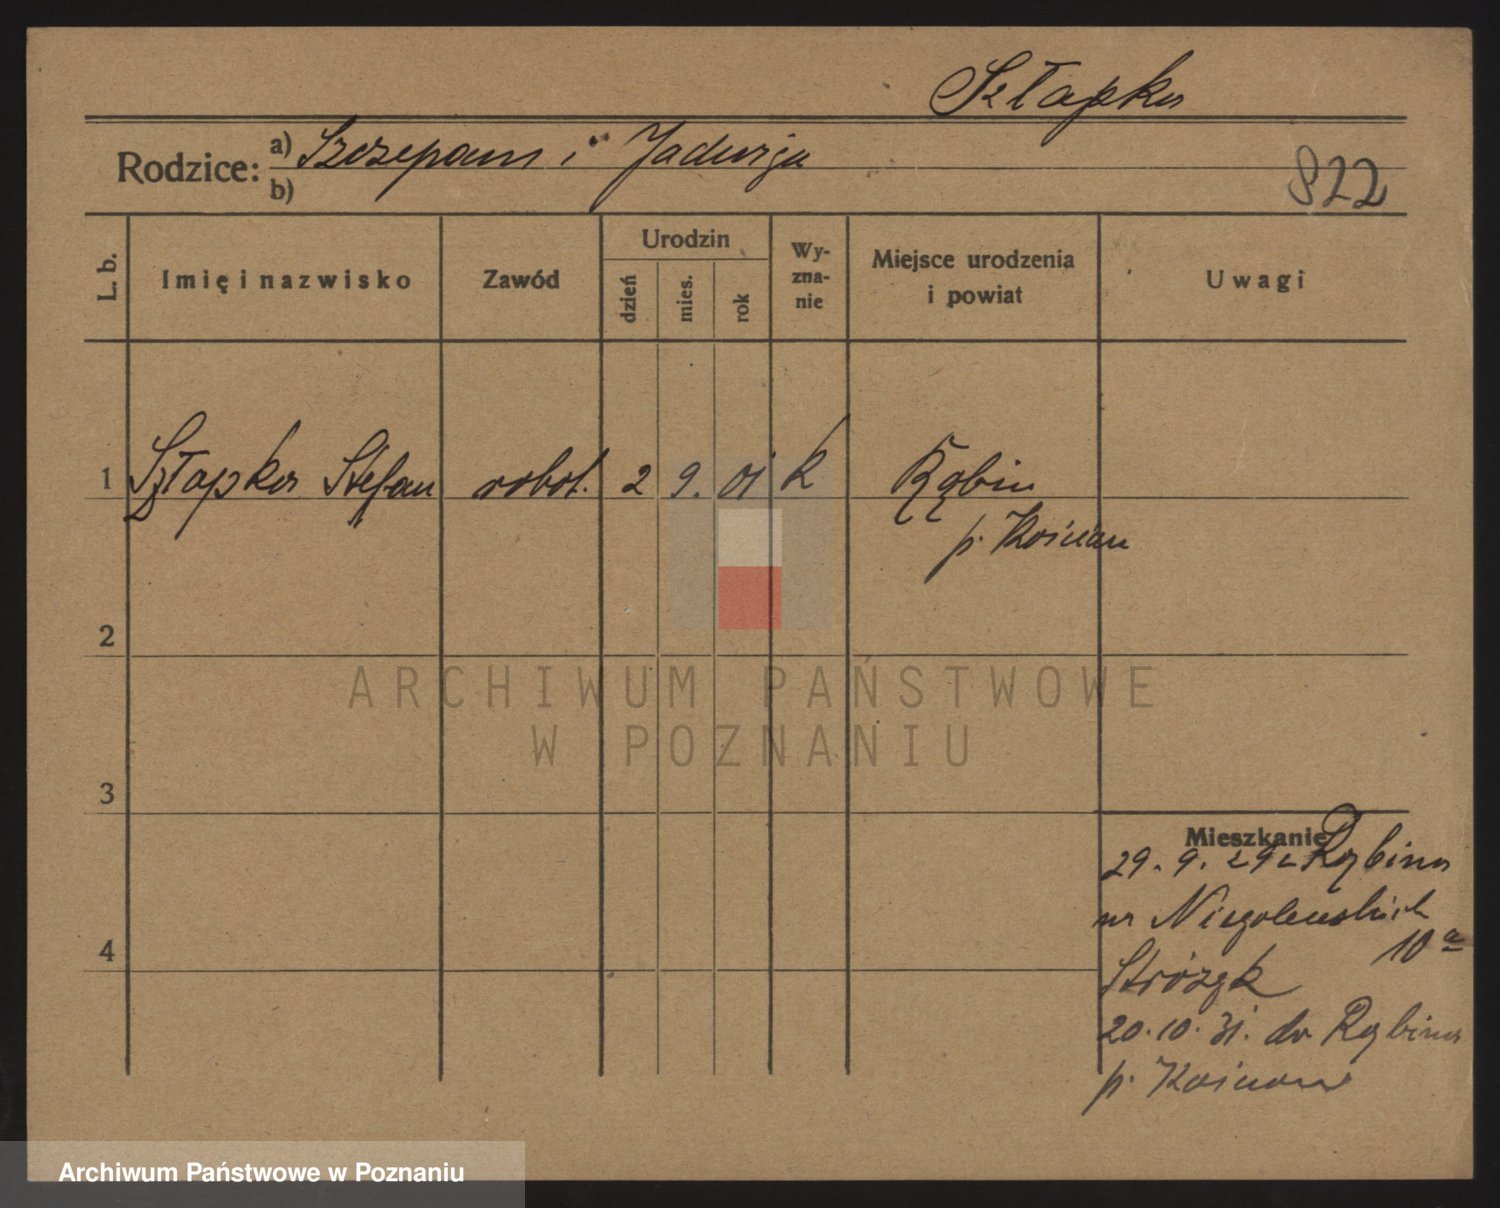 Szłapka
Rodzice: a) Szczepan i Jadwiga
b)
822
L. b. Imię i nazwisko Zawód Urodzin dzień mies. rok Wy-zna-nie Miejsce urodzenia i powiat Uwagi
1 Szłapka Stefan robot. 2 9. 01 k Rąbiń
p. Kościan
2
3
4
Mieszkanie
29. 9. 29 z Rąbina
na Niegolewskich
10 a
Stróżyk
20. 10. 31. do Rąbina
p. Kościan
ARCHIWUM PAŃSTWOWE
W POZNANIU
Archiwum Państwowe w Poznaniu